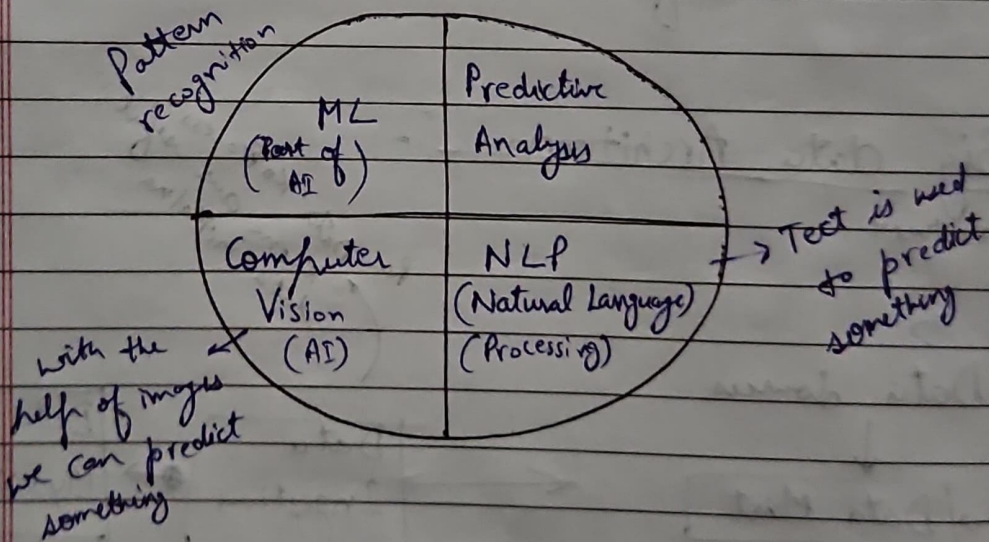 Pattern
recognition
ML
(Part of
AI)
Predictive
Analysis
Computer
Vision
(AI)
NLP
(Natural Language)
(Processing)
→ Text is used
to predict
something
with the
help of images
we can predict
something